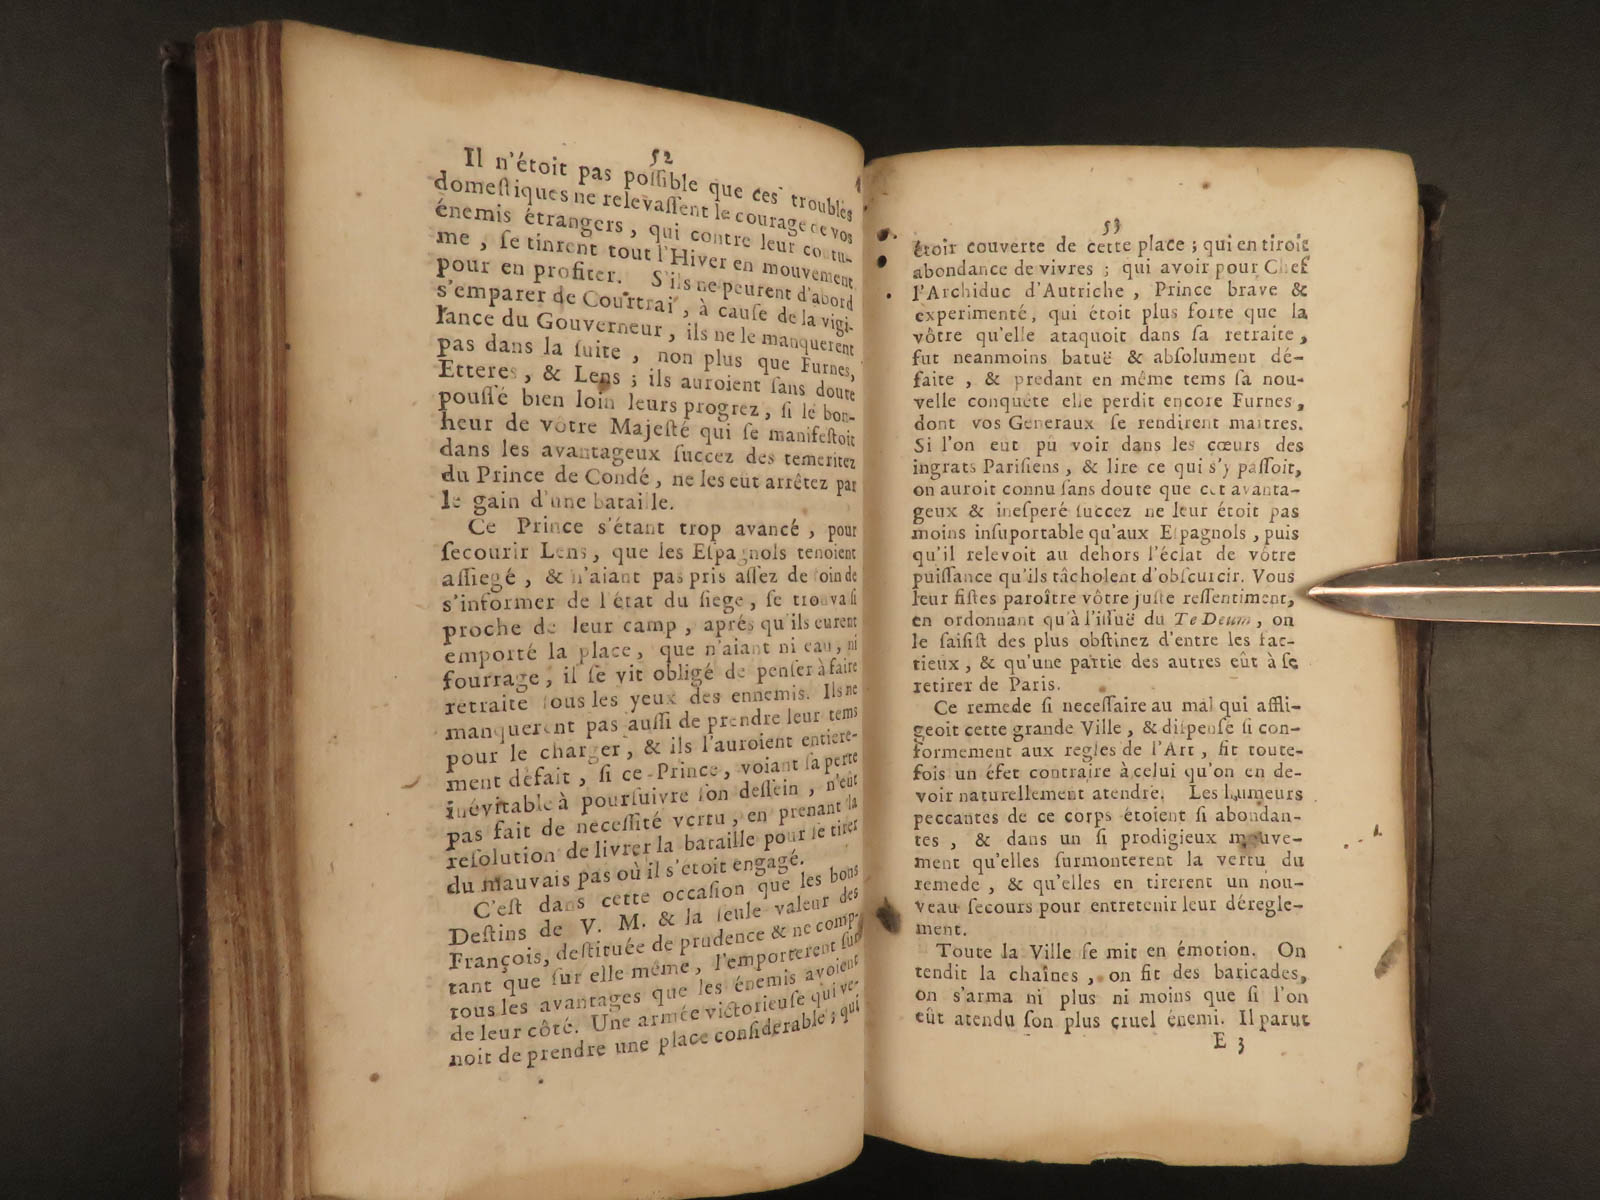 52
Il n'étoit pas poſſible que ces troubles
domeſtiques ne relevaſſent le courage de vos
énemis étrangers, qui contre leur coutu-
me, ſe tinrent tout l'Hiver en mouvement
pour en profiter. S'ils ne peurent d'abord
s'emparer de Courtrai, à cauſe de la vigi-
lance du Gouverneur, ils ne le manquerent
pas dans la ſuite, non plus que Furnes,
Etteres, & Lens; ils auroient ſans doute
pouſſé bien loin leurs progrez, ſi le bon-
heur de vôtre Majeſté qui ſe manifeſtoit
dans les avantageux ſuccez des temeritez
du Prince de Condé, ne les eût arrêtez par
le gain d'une bataille.
Ce Prince s'étant trop avancé, pour
ſecourir Lens, que les Eſpagnols tenoient
aſſiegé, & n'aiant pas pris aſſez de ſoin de
s'informer de l'état du ſiege, ſe trouva ſi
proche de leur camp, aprés qu'ils eurent
emporté la place, que n'aiant ni eau, ni
fourrage, il ſe vit obligé de penſer à faire
retraite ſous les yeux des ennemis. Ils ne
manquerent pas auſſi de prendre leur tems
pour le charger, & ils l'auroient entiere-
ment défait, ſi ce Prince, voiant ſa perte
inévitable à pourſuivre ſon deſſein, n'eût
pas fait de neceſſité vertu, en prenant la
reſolution de livrer la bataille pour ſe tirer
du mauvais pas où il s'étoit engagé.
C'eſt dans cette occaſion que les bons
Deſtins de V. M. & la ſeule valeur des
François, deſtituée de prudence & ne comp-
tant que ſur elle même, l'emporterent ſur
tous les avantages que les énemis avoient
de leur côté. Une armée victorieuſe qui ve-
noit de prendre une place conſiderable; qui
53
étoit couverte de cette place; qui en tiroit
abondance de vivres; qui avoit pour Chef
l'Archiduc d'Autriche, Prince brave &
experimenté, qui étoit plus forte que la
vôtre qu'elle ataquoit dans ſa retraite,
fut neanmoins batuë & abſolument dé-
faite, & predant en même tems ſa nou-
velle conquête elle perdit encore Furnes,
dont vos Generaux ſe rendirent maîtres.
Si l'on eut pû voir dans les cœurs des
ingrats Pariſiens, & lire ce qui s'y paſſoit,
on auroit connu ſans doute que cet avanta-
geux & ineſperé ſuccez ne leur étoit pas
moins inſuportable qu'aux Eſpagnols, puis
qu'il relevoit au dehors l'éclat de vôtre
puiſſance qu'ils tâchoient d'obſcurcir. Vous
leur fiſtes paroître vôtre juſte reſſentiment,
en ordonnant qu'à l'iſſuë du Te Deum, on
ſe ſaiſiſt des plus obſtinez d'entre les fac-
tieux, & qu'une partie des autres eût à ſe
retirer de Paris.
Ce remede ſi neceſſaire au mal qui affli-
geoit cette grande Ville, & diſpenſé ſi con-
formement aux regles de l'Art, fit toute-
fois un éfet contraire à celui qu'on en de-
voir naturellement atendre. Les humeurs
peccantes de ce corps étoient ſi abondan-
tes, & dans un ſi prodigieux mouve-
ment qu'elles ſurmonterent la vertu du
remede, & qu'elles en tirerent un nou-
veau ſecours pour entretenir leur déregle-
ment.
Toute la Ville ſe mit en émotion. On
tendit la chaînes, on fit des baricades,
on s'arma ni plus ni moins que ſi l'on
eût atendu ſon plus cruel énemi. Il parut
E 3